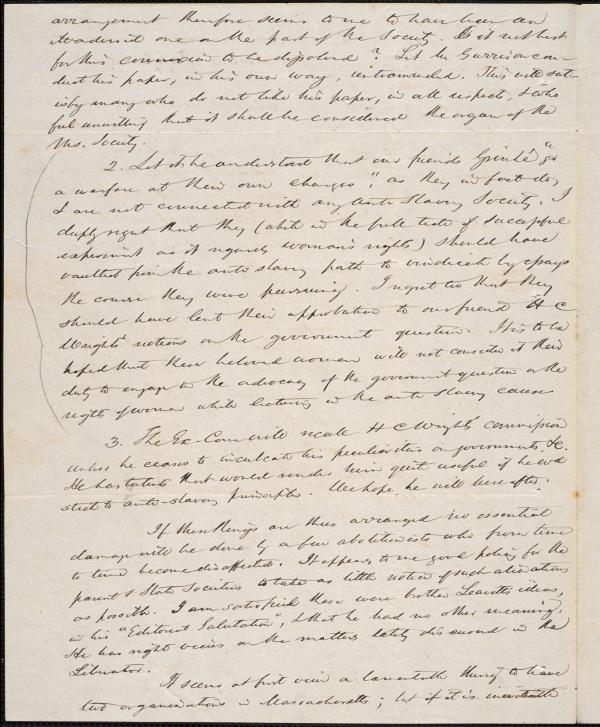 arrangement therefore seems to me to have been an
ill-advised one on the part of the Society. Is it not best
for this connexion to be dissolved? Let Mr Garrison con-
duct his paper, in his own way, untrammeled. This will sat-
isfy many who do not like his paper, in all respects, & who
feel unwilling that it shall be considered the organ of the
Mass. Society.
2. Let it be understood that our friends Grimké "go
a warfare at their own charges", as they in fact do,
& are not connected with any anti slavery Society. I
deeply regret that they (while in the full tide of successful
experiment as it regards woman's rights) should have
vaulted from the anti slavery path to vindicate by essays
the course they were pursuing. I regret too that they
should have lent their approbation to our friend H C
Wright's notions on the government question. It is to be
hoped that these beloved women will not consider it their
duty to engage in the advocacy of the government question or the
rights of woman while lecturing in the anti slavery cause
3. The Ex. Com will recall H C Wright's commission
unless he ceases to inculcate his peculiarities on governments &c.
He has talents that would render him quite useful if he wd
stick to anti-slavery principles. We hope he will hereafter.
If these things are thus arranged no essential
damage will be done by a few abolitionists who from time
to time become disaffected. It appears to me good policy for the
parent & State Societies to take as little notice of such alienations
as possible. I am satisfied these were brother Leavitt's ideas,
in his "Editorial Salutation", & that he had no other meaning.
He has right views on the matters lately discussed in the
Liberator.
It seems at first view a lamentable thing to have
two organizations in Massachusetts; but if it is inevitable